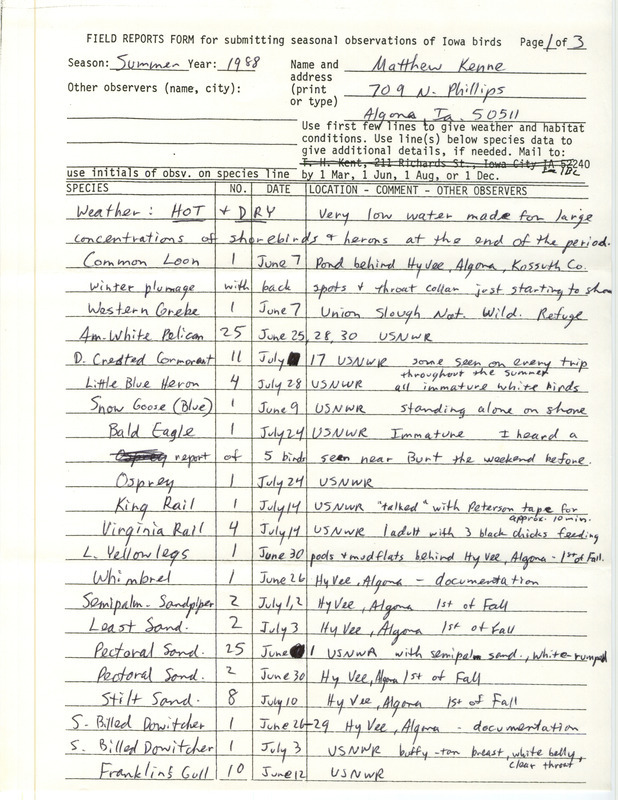 FIELD REPORTS FORM for submitting seasonal observations of Iowa birds Page 1 of 3
Season: Summer Year: 1988 Name and Matthew Kenne
address
Other observers (name, city): (print 709 N. Phillips
or type)
Algona, Ia. 50511
Use first few lines to give weather and habitat
conditions. Use line(s) below species data to
give additional details, if needed. Mail to:
T. H. Kent, 211 Richards St., Iowa City IA 52240
use initials of obsv. on species line by 1 Mar, 1 Jun, 1 Aug, or 1 Dec.
SPECIES NO. DATE LOCATION - COMMENT - OTHER OBSERVERS
Weather: HOT + DRY Very low water made for large
concentrations of shorebirds + herons at the end of the period.
Common Loon 1 June 7 Pond behind HyVee, Algona, Kossuth Co.
winter plumage with back spots + throat collar just starting to show
Western Grebe 1 June 7 Union Slough Nat. Wild. Refuge
Am. White Pelican 25 June 25, 28, 30 USNWR
D. Crested Cormorant 11 July 17 USNWR some seen on every trip
throughout the summer
Little Blue Heron 4 July 28 USNWR all immature white birds
Snow Goose (Blue) 1 June 9 USNWR standing alone on shore
Bald Eagle 1 July 24 USNWR Immature I heard a
Osprey report of 5 birds seen near Burt the weekend before.
Osprey 1 July 24 USNWR
King Rail 1 July 14 USNWR "talked" with Peterson tape for
approx. 10 min.
Virginia Rail 4 July 14 USNWR 1 adult with 3 black chicks feeding
L. Yellowlegs 1 June 30 pods + mudflats behind HyVee, Algona - 1st of Fall.
Whimbrel 1 June 26 HyVee, Algona - documentation
Semipalm. Sandpiper 2 July 1,2 HyVee, Algona 1st of Fall
Least Sand. 2 July 3 HyVee, Algona 1st of Fall
Pectoral Sand. 25 June 1 USNWR with semipalm sand., white-rumped
Pectoral Sand. 2 June 30 Hy Vee, Algona 1st of Fall
Stilt Sand. 8 July 10 Hy Vee, Algona 1st of Fall
S. Billed Dowitcher 1 June 26-29 Hy Vee, Algona - documentation
S. Billed Dowitcher 1 July 3 USNWR buffy-tan breast, white belly,
clear throat
Franklin's Gull 10 June 12 USNWR